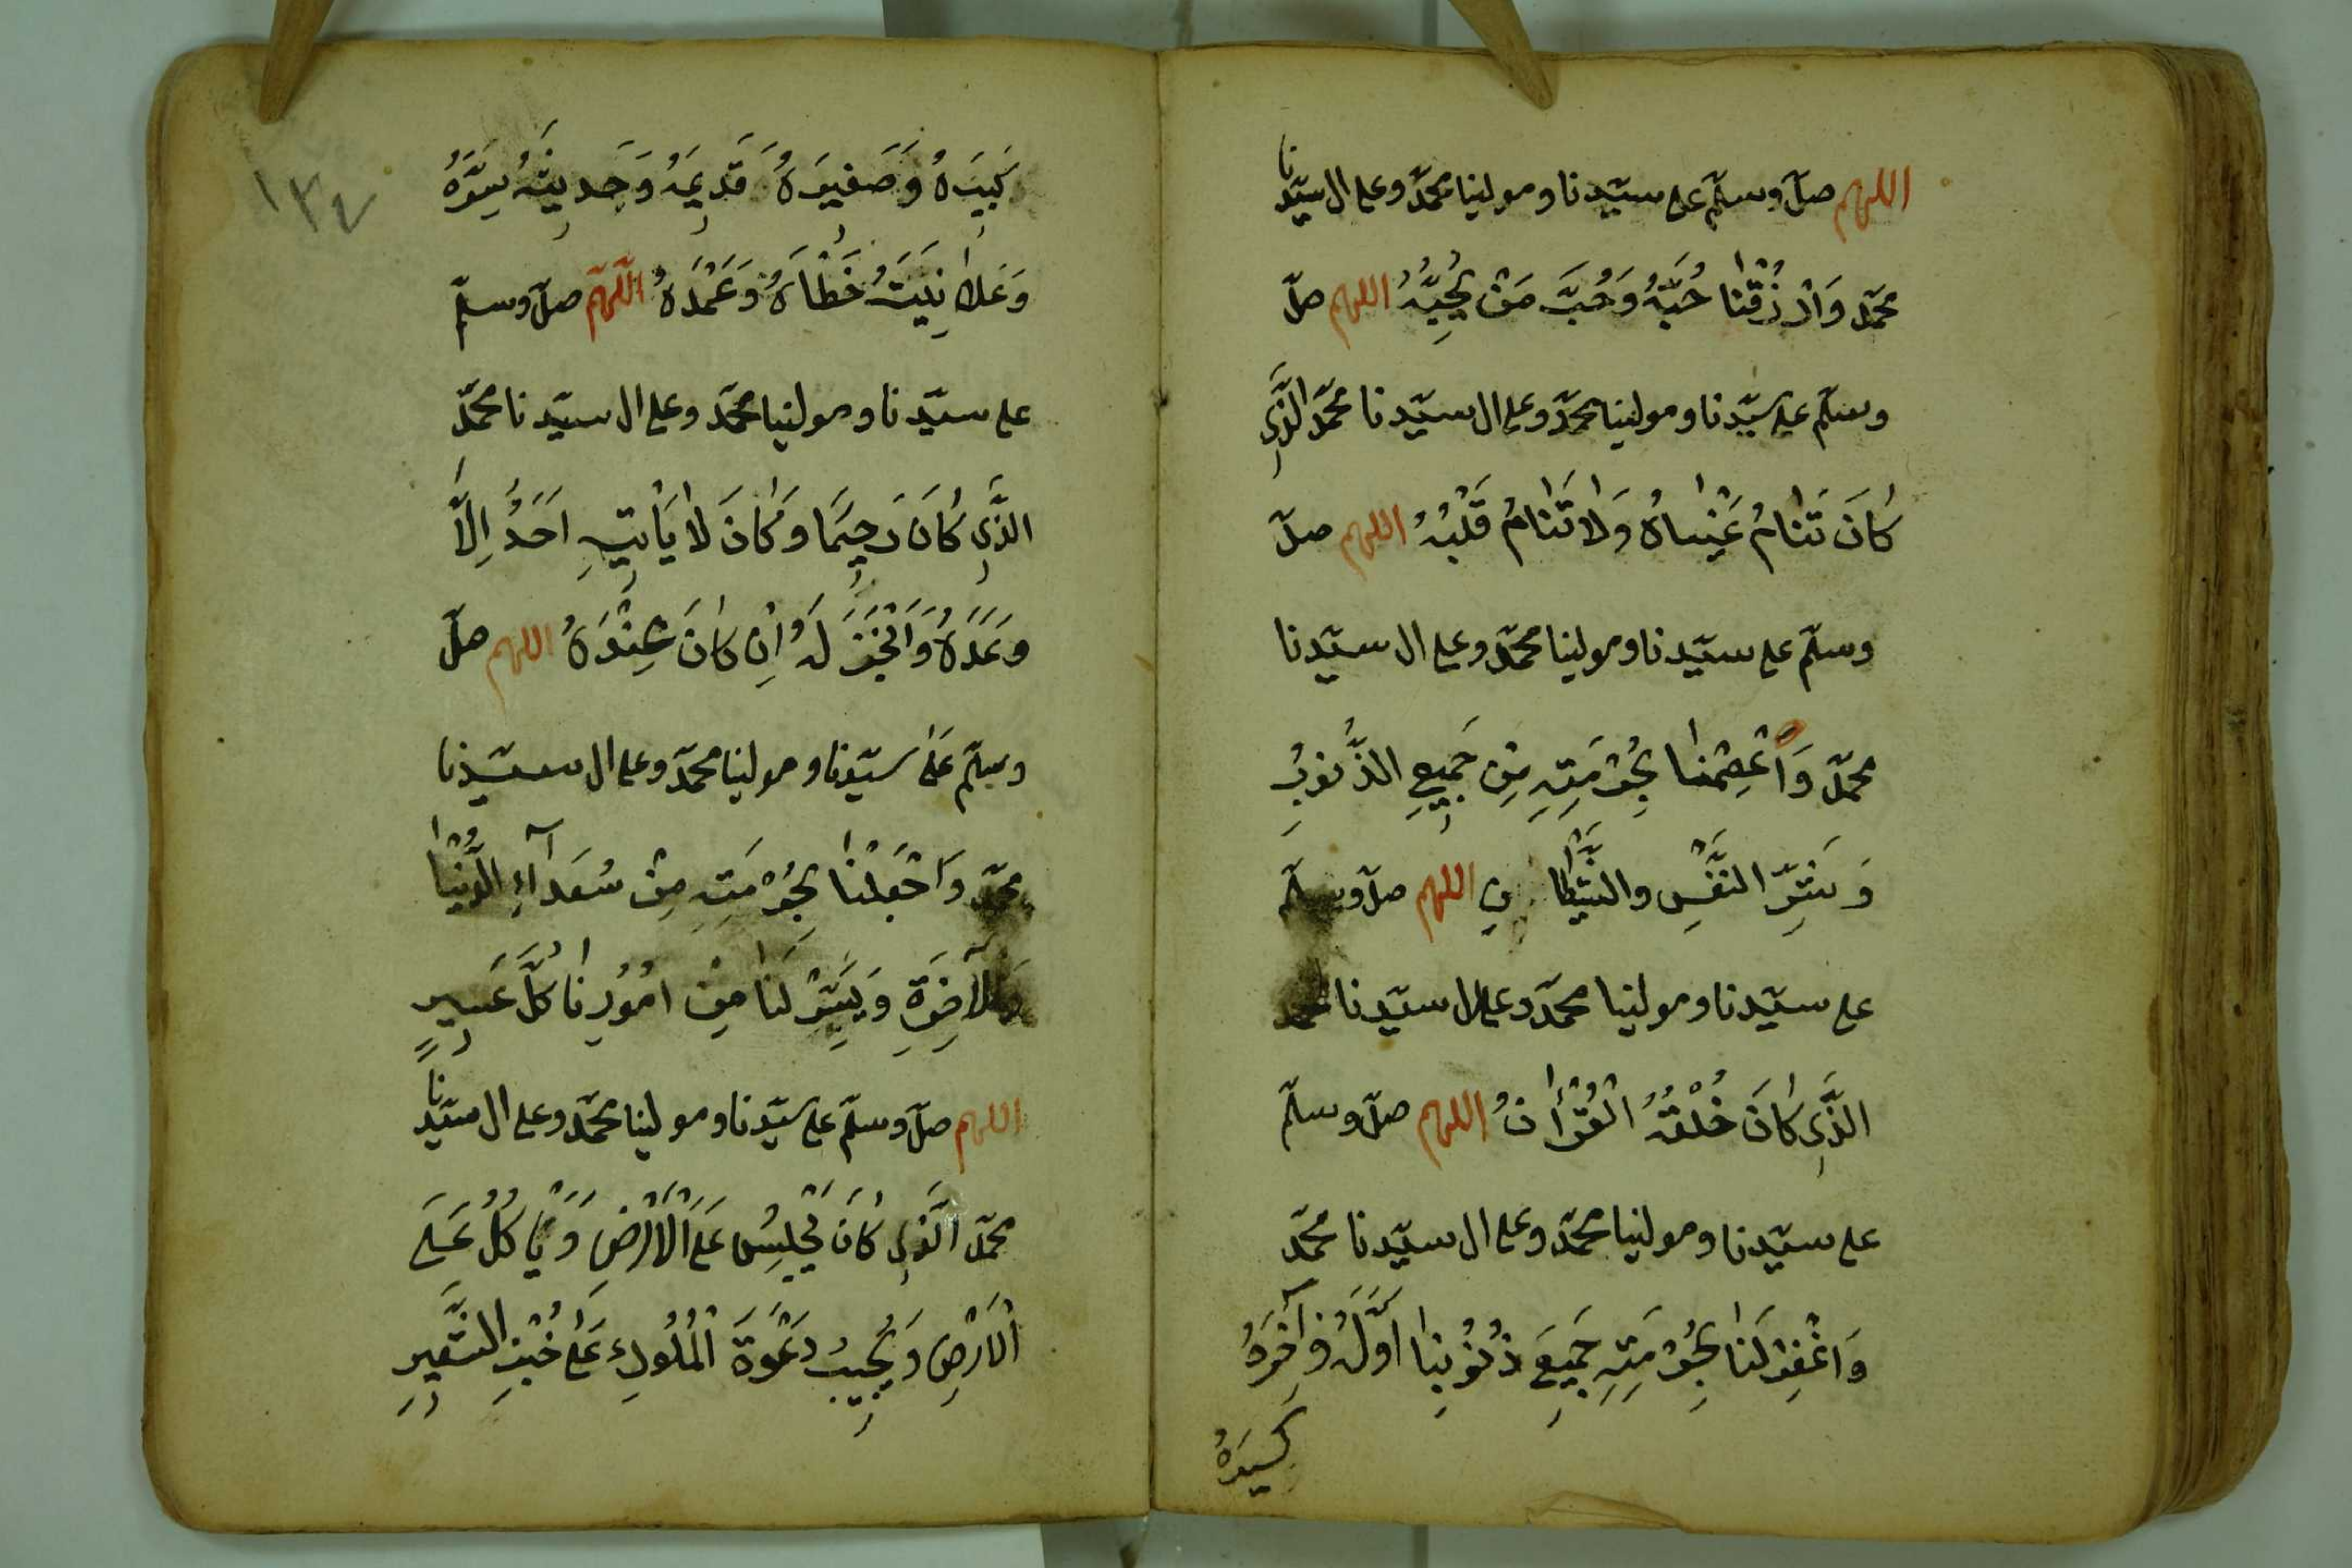 اللهم صلّ وسلّم على سيّدنا ومولينا محمّد وعلى ال سيّدنا
محمّد وَارْزُقْنا حُبَّهُ وَحُبَّ مَنْ يُحِبُّهُ اللهم صلّ
وسلّم على سيّدنا ومولينا محمّد وعلى ال سيّدنا محمّد الَّذِى
كانَ تَنامُ عَيْناهُ وَلا تَنامُ قَلْبُهُ اللهم صلّ
وسلّم على سيّدنا ومولينا محمّد وعلى ال سيّدنا
محمّد وَاعْصِمْنا بِحُرْمَتِهِ مِنْ جَمِيعِ الذُّنوبِ
وَشَرِّ النَّفْسِ والشَّيْطانِ اللهم صلّ وسلّم
على سيّدنا ومولينا محمّد وعلى ال سيّدنا محمد
الَّذِى كانَ خُلْقُهُ الْقُرْأٰنُ اللهم صلّ وسلّم
على سيّدنا ومولينا محمّد وعلى ال سيّدنا محمّد
وَاغْفِرْ لَنا بِحُرْمَتِهِ جَمِيعَ ذُنُوبِنا اَوَّلَهُ وَآخِرَهُ
كبيره
١٣٤
كَبِيرَهُ وَصَغِيرَهُ قَدِيمَهُ وَحَدِيثَهُ سِرَّهُ
وَعَلانِيَتَهُ خَطْاَهُ وَعَمْدَهُ اللّهمّ صلّ وسلّم
على سيّدنا ومولينا محمّد وعلى ال سيّدنا محمّد
الَّذِى كانَ رَحِيمًا وَكانَ لا يَأْتِيهِ اَحَدٌ اِلاَّ
وَعَدَهُ وَاَنْجَزَ لَهُ اِنْ كانَ عِنْدَهُ اللهم صلّ
وسلّم عَلى سيّدنا ومولينا محمّد وعلى ال سيّدنا
محمّد وَاجْعَلْنا بِحُرْمَتِهِ مِنْ سُعَدآءِ الدُّنْيا
وَالآخِرَةِ وَيَسِّرْ لَنا مِنْ اُمُورِنا كُلَّ عَسِيرٍ
اللهم صلّ وسلّم على سيّدنا ومولينا محمّد وعلى ال سيّدنا
محمّد الَّذِى كانَ يَجْلِسُ عَلَى الْاَرْضِ وَيَأكُلُ عَلَى
الْاَرْضِ وَيُجِيبُ دَعْوَةَ الْمَلُوكِ عَلى خُبْزِ الشَّعِيرِ